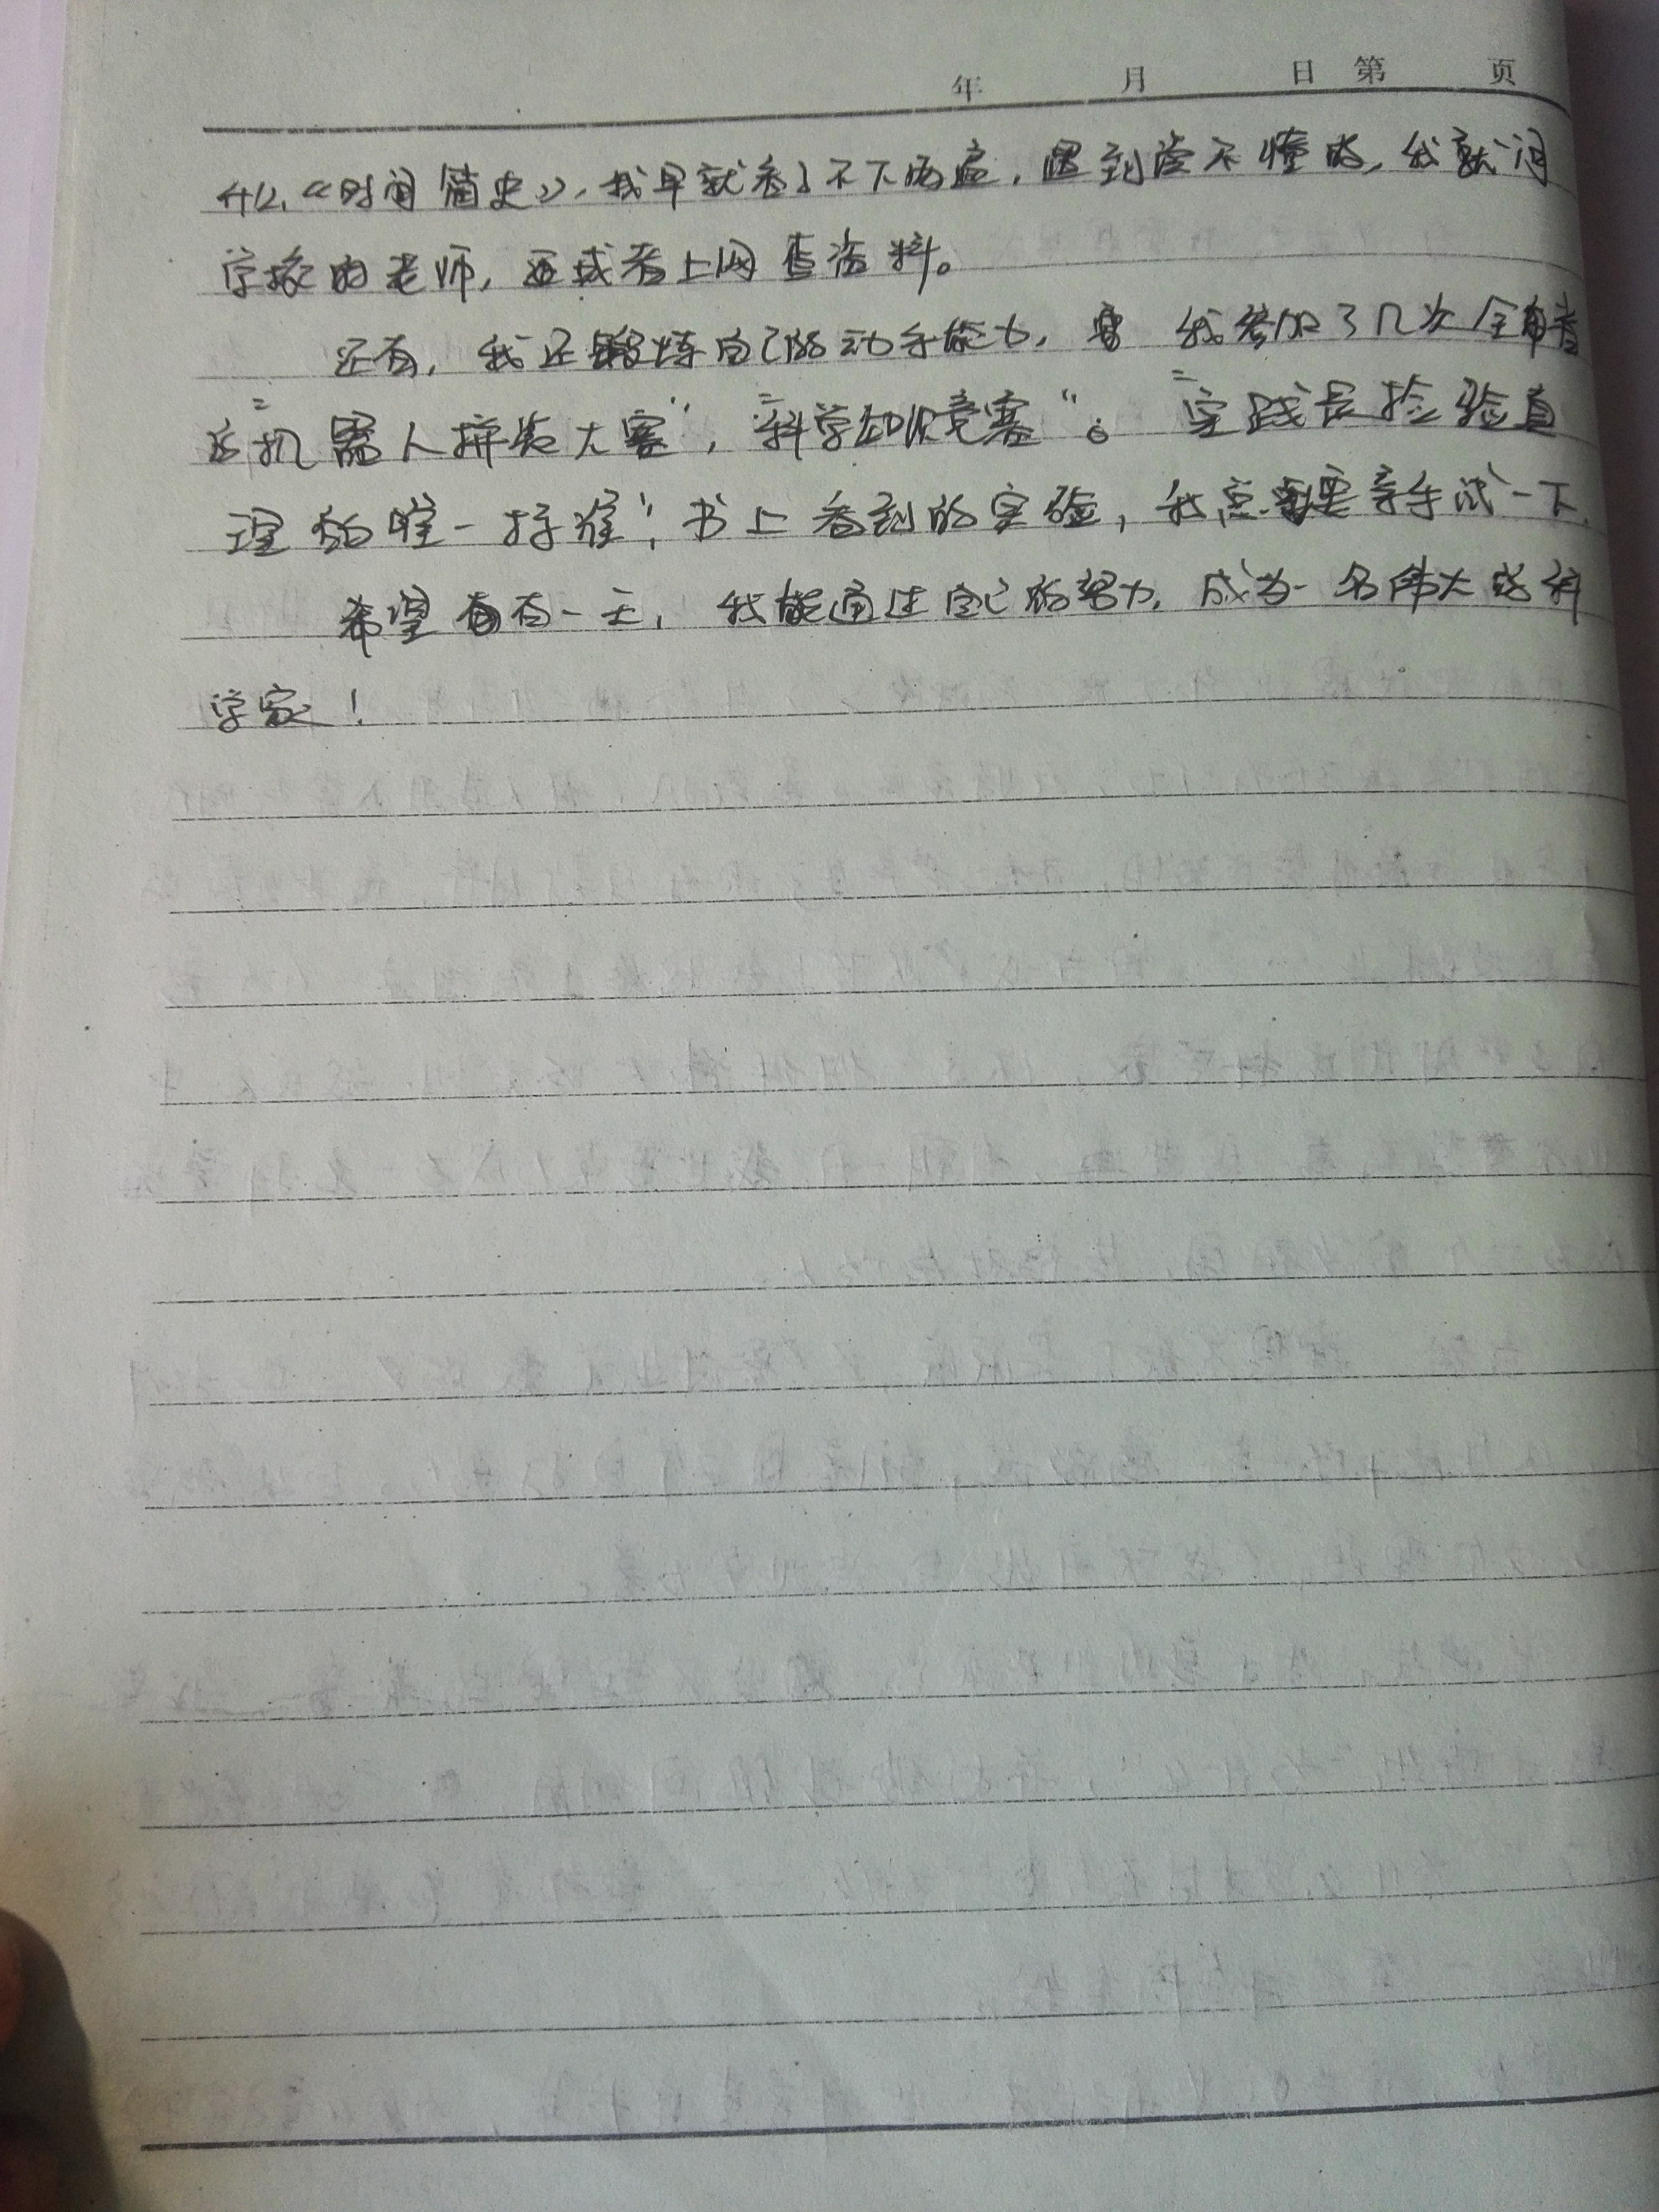 年 月 日 第 页
《时间简史》，我早就看了不下两遍，遇到读不懂的，我就问
学校的老师，再或者上网查资料。
还有，我还锻炼自己的动手能力，我参加了几次全
机器人拼装大赛”，“科学知识竞赛”。“实践是检验真
理的唯一标准”，书上看到的实验，我总要亲手试一下.
希望有一天，我能通过自己的努力，成为一名伟大的科
学家！